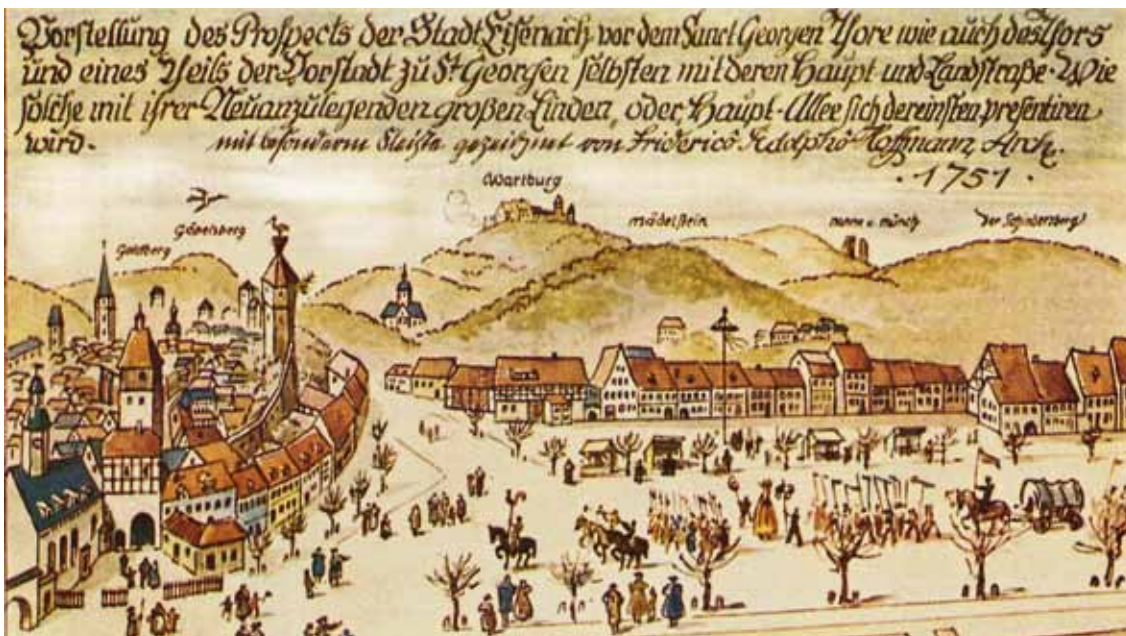 Vorstellung des Prospects der Stadt Eisenach vor dem Sanct Georgen Thore wie auch des Thors
und eines Theils der Vorstadt zu St Georgen selbsten mit deren Haupt und Landstraße. Wie
solche mit ihrer Neuanzulegenden großen Linden, oder Haupt-Allee sich dereinsten presentiren
wird.
mit besonderm Fleiße gezeichnet von Friderico Adolpho Hoffmann, Arch.
· 1751 ·
Wartburg
Göpelsberg
Goldberg
mädelstein
nonne u. münch
der Schindersberg